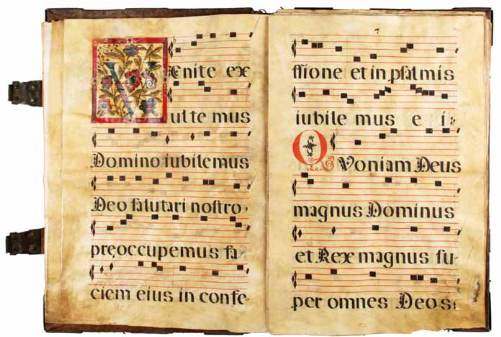 Venite ex
ulte mus
Domino iubilemus
Deo salutari nostro
preoccupemus fa
ciem eius in confe
ssione et in psalmis
iubile mus e i
QVoniam Deus
magnus Dominus
et Rex magnus su
per omnes Deos